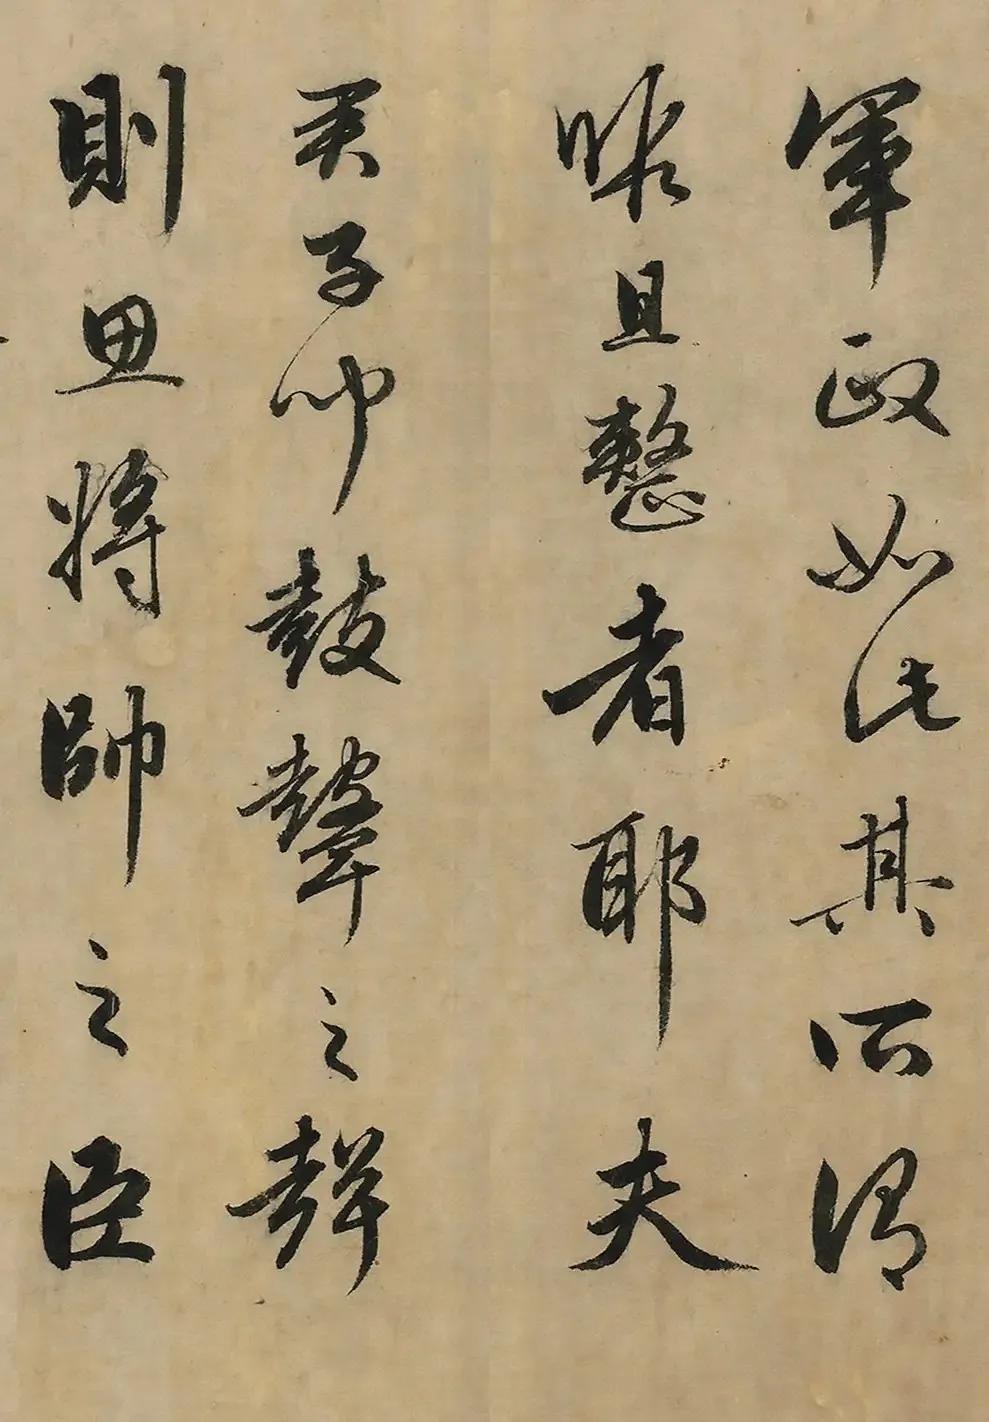 軍政如此其所謂
暇且整者耶夫
君子聽鼓鼙之聲
則思將帥之臣